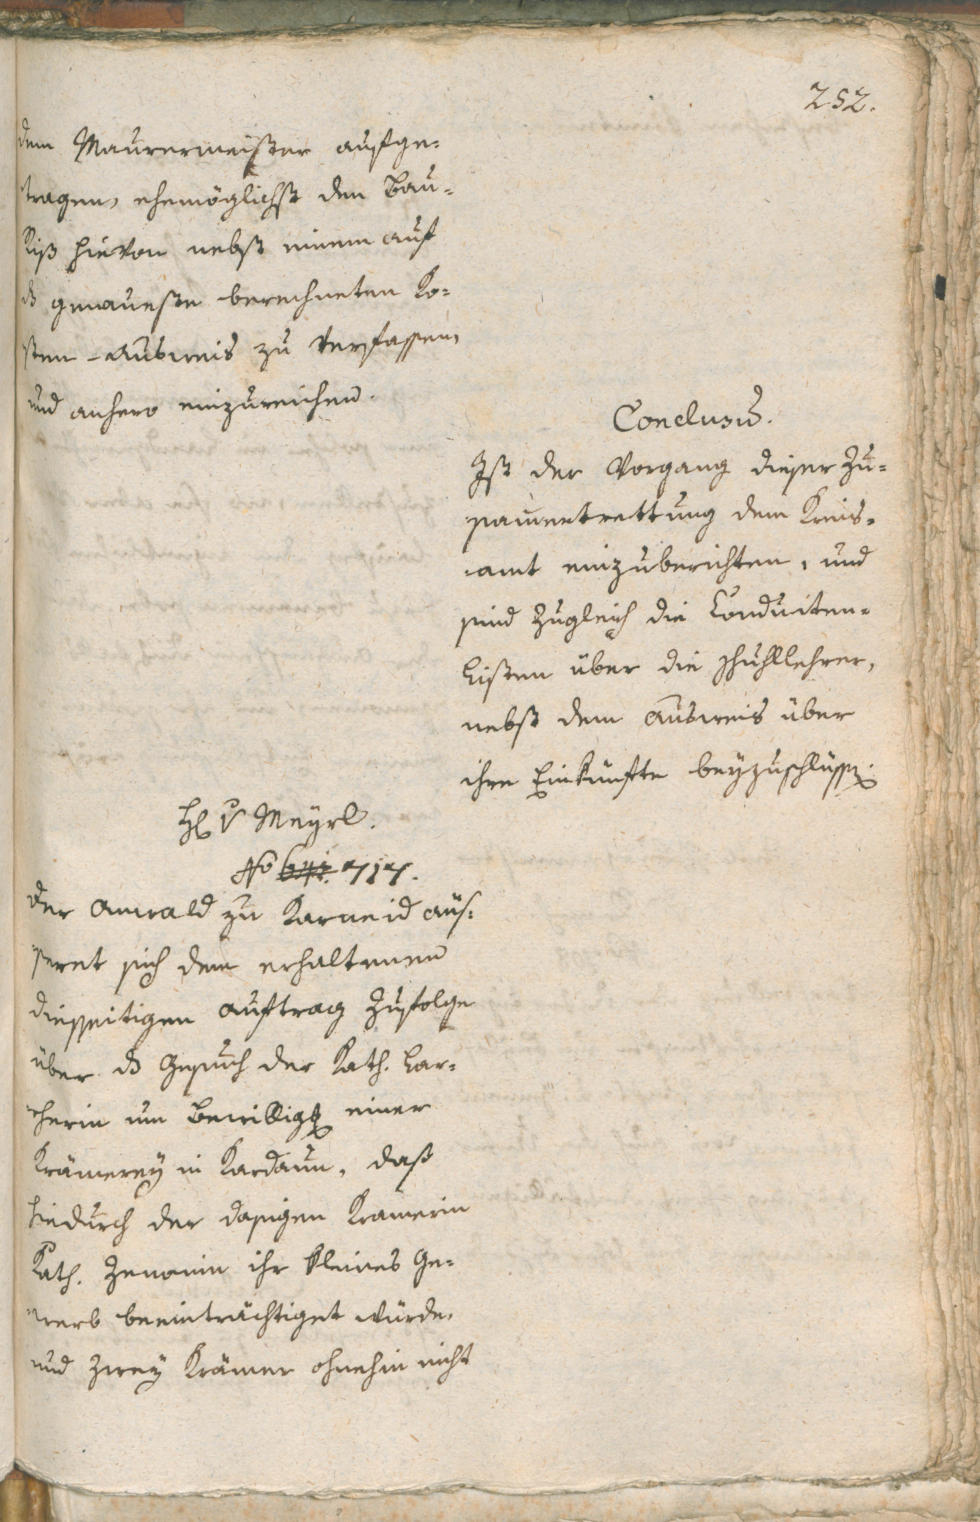 252.
dem Maurermeister aufge-
tragen, ehemöglichst den Bau-
Riß hievon nebst einem auf
dß genaueste berechneten Ko-
sten-Ausweis zu verfassen,
und anhero einzureichen.
Conclusum.
Ist der Vorgang dieser Zu-
sammentrettung dem Kreis-
amt einzuberichten, und
sind zugleich die Conduiten-
Listen über die Schuhllehrer,
nebst dem Ausweis über
ihre Einkünfte beyzuschlüssen.
H. v Meyrl.
No 717.
Der Anwald zu Karneid äus-
seret sich dem erhaltenen
diesseitigen Auftrag zufolge
über dß Gesuch der Kath. Lar-
cherin um Bewilligg einer
Krämerey in Kardaun, daß
hiedurch der dasigen Kramerin
Kath. Zenonin ihr kleines Ge-
werb beeinträchtiget würde,
und zwey Krämer ohnehin nicht